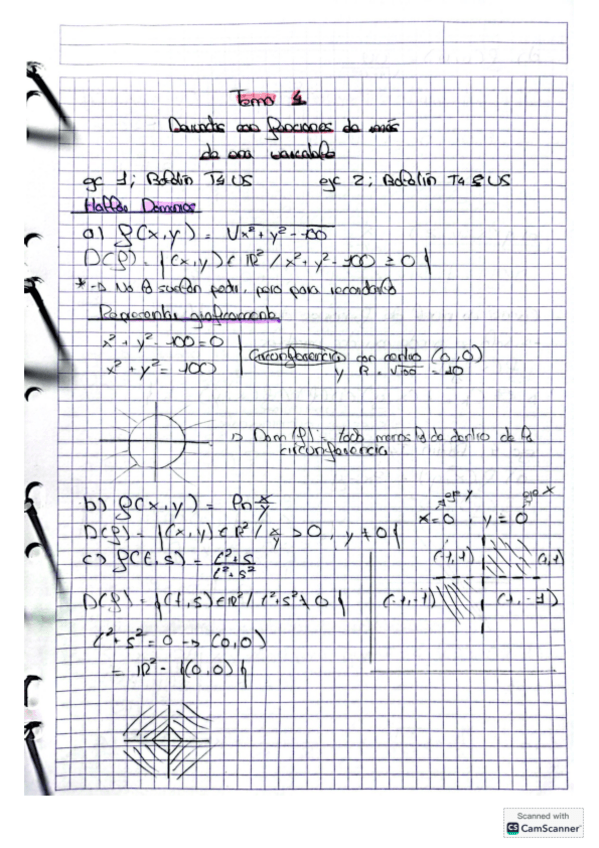 Tema 4
Derivadas con funciones de más
de una variable
ejc 1; Boletín T4 US ejc 2; Boletín T4 US
Hallar Dominios
a) f(x,y) = √x²+y²-100
D(f) = {(x,y) ∈ ℝ² / x²+y²-100 ≥ 0}
* → No lo suelen pedir, pero para recordarlo
Representar gráficamente
x² + y² - 100 = 0
x² + y² = 100
Circunferencia con centro (0,0)
y R = √100 = 10
→ Dom(f) = todo menos lo de dentro de la
circunferencia
b) f(x,y) = ln x/y
D(f) = {(x,y) ∈ ℝ² / x/y > 0, y ≠ 0}
eje y eje x
x=0 , y=0
(-1,1) (1,1)
(-1,-1) (1,-1)
c) f(t,s) = t²+s/t²+s²
D(f) = {(t,s) ∈ ℝ² / t²+s² ≠ 0}
t² + s² = 0 → (0,0)
= ℝ² - {(0,0)}
Scanned with
CS CamScanner